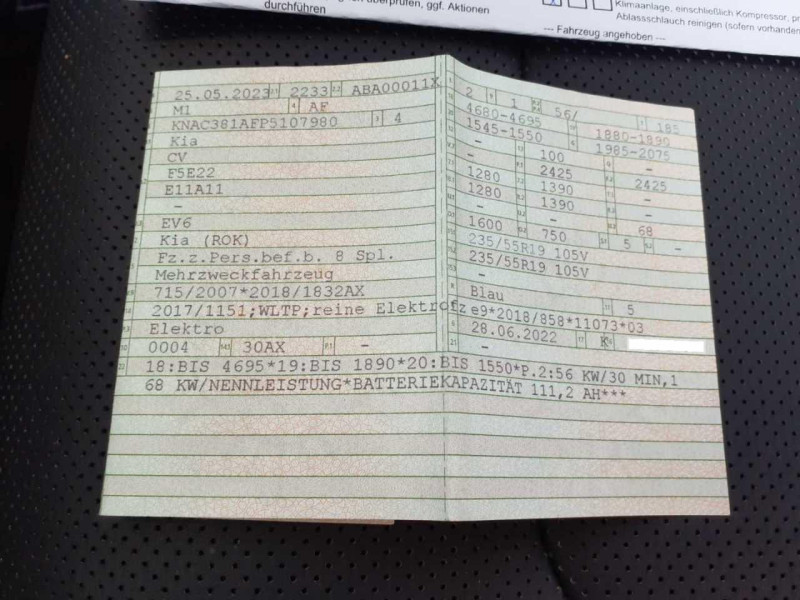 überprüfen, ggf. Aktionen
durchführen
Klimaanlage, einschließlich Kompressor,
Ablassschlauch reinigen (sofern
--- Fahrzeug angehoben ---
25.05.2023 2233 ABA00011X
M1 AF
KNAC381AFP5107980 4
Kia
CV
F5E22
E11A11
–
EV6
Kia (ROK)
Fz.z.Pers.bef.b. 8 Spl.
Mehrzweckfahrzeug
715/2007*2018/1832AX
2017/1151;WLTP;reine Elektrofz
Elektro
0004 30AX –
2 1 56/ 185
4680-4695 1880-1890
1545-1550 1985-2075
– 100 –
– 2425 –
1280 1390 2425
1280 1390 –
– – 68
1600 750 5 –
235/55R19 105V
235/55R19 105V
–
Blau 5
e9*2018/858*11073*03
28.06.2022 K
–
18:BIS 4695*19:BIS 1890*20:BIS 1550*P.2:56 KW/30 MIN,1
68 KW/NENNLEISTUNG*BATTERIEKAPAZITÄT 111,2 AH***